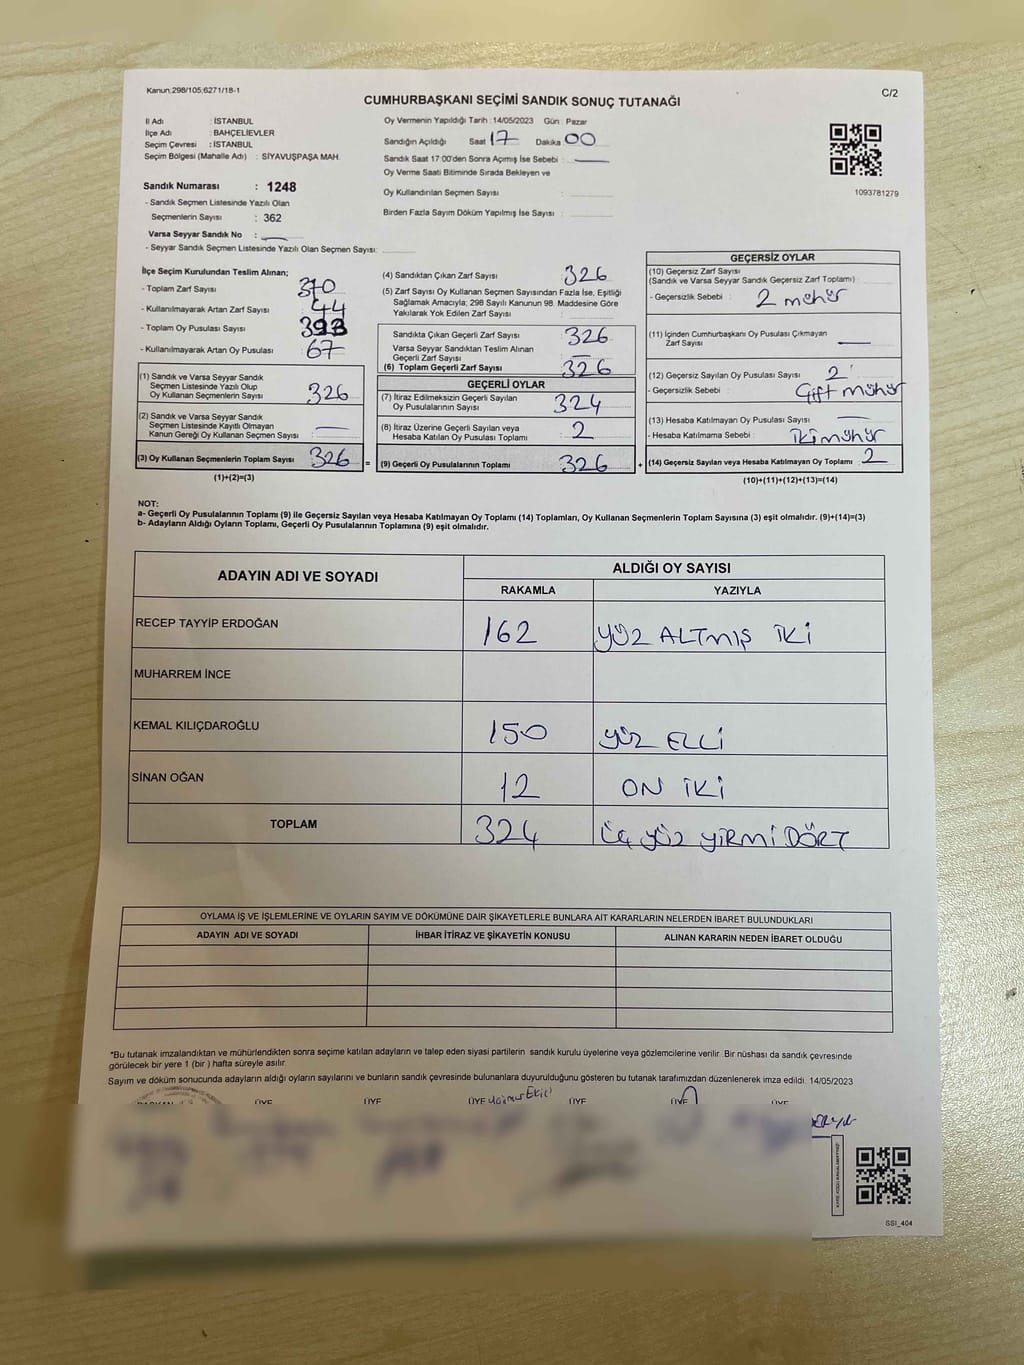 Kanun;298/105;6271/18-1
C/2
CUMHURBAŞKANI SEÇİMİ SANDIK SONUÇ TUTANAĞI
İl Adı : İSTANBUL
İlçe Adı : BAHÇELİEVLER
Seçim Çevresi : İSTANBUL
Seçim Bölgesi (Mahalle Adı) : SİYAVUŞPAŞA MAH.
Oy Vermenin Yapıldığı Tarih : 14/05/2023 Gün : Pazar
Sandığın Açıldığı Saat 17 Dakika 00
Sandık Saat 17:00'den Sonra Açımış İse Sebebi :
Oy Verme Saati Bitiminde Sırada Bekleyen ve
Oy Kullandırılan Seçmen Sayısı :
Birden Fazla Sayım Döküm Yapılmış İse Sayısı :
1093781279
Sandık Numarası : 1248
- Sandık Seçmen Listesinde Yazılı Olan
Seçmenlerin Sayısı : 362
Varsa Seyyar Sandık No :
- Seyyar Sandık Seçmen Listesinde Yazılı Olan Seçmen Sayısı:
İlçe Seçim Kurulundan Teslim Alınan;
- Toplam Zarf Sayısı : 370
- Kullanılmayarak Artan Zarf Sayısı : 44
- Toplam Oy Pusulası Sayısı : 393
- Kullanılmayarak Artan Oy Pusulası : 67
(1) Sandık ve Varsa Seyyar Sandık
Seçmen Listesinde Yazılı Olup
Oy Kullanan Seçmenlerin Sayısı : 326
(2) Sandık ve Varsa Seyyar Sandık
Seçmen Listesinde Kayıtlı Olmayan
Kanun Gereği Oy Kullanan Seçmen Sayısı :
(3) Oy Kullanan Seçmenlerin Toplam Sayısı 326
(1)+(2)=(3)
=
(4) Sandıktan Çıkan Zarf Sayısı : 326
(5) Zarf Sayısı Oy Kullanan Seçmen Sayısından Fazla İse, Eşitliği
Sağlamak Amacıyla; 298 Sayılı Kanunun 98. Maddesine Göre
Yakılarak Yok Edilen Zarf Sayısı :
Sandıkta Çıkan Geçerli Zarf Sayısı : 326
Varsa Seyyar Sandıktan Teslim Alınan
Geçerli Zarf Sayısı :
(6) Toplam Geçerli Zarf Sayısı : 326
GEÇERLİ OYLAR
(7) İtiraz Edilmeksizin Geçerli Sayılan
Oy Pusulalarının Sayısı : 324
(8) İtiraz Üzerine Geçerli Sayılan veya
Hesaba Katılan Oy Pusulası Toplamı : 2
(9) Geçerli Oy Pusulalarının Toplamı : 326
+
GEÇERSİZ OYLAR
(10) Geçersiz Zarf Sayısı
(Sandık ve Varsa Seyyar Sandık Geçersiz Zarf Toplamı) :
- Geçersizlik Sebebi : 2 mühür
(11) İçinden Cumhurbaşkanı Oy Pusulası Çıkmayan
Zarf Sayısı :
(12) Geçersiz Sayılan Oy Pusulası Sayısı : 2
- Geçersizlik Sebebi : Çift mühür
(13) Hesaba Katılmayan Oy Pusulası Sayısı :
- Hesaba Katılmama Sebebi : iki mühür
(14) Geçersiz Sayılan veya Hesaba Katılmayan Oy Toplamı : 2
(10)+(11)+(12)+(13)=(14)
NOT:
a- Geçerli Oy Pusulalarının Toplamı (9) ile Geçersiz Sayılan veya Hesaba Katılmayan Oy Toplamı (14) Toplamları, Oy Kullanan Seçmenlerin Toplam Sayısına (3) eşit olmalıdır. (9)+(14)=(3)
b- Adayların Aldığı Oyların Toplamı, Geçerli Oy Pusulalarının Toplamına (9) eşit olmalıdır.
ADAYIN ADI VE SOYADI
ALDIĞI OY SAYISI
RAKAMLA YAZIYLA
RECEP TAYYİP ERDOĞAN 162 YÜZ ALTMIŞ İKİ
MUHARREM İNCE
KEMAL KILIÇDAROĞLU 150 YÜZ ELLİ
SİNAN OĞAN 12 ON İKİ
TOPLAM 324 ÜÇ YÜZ YİRMİ DÖRT
OYLAMA İŞ VE İŞLEMLERİNE VE OYLARIN SAYIM VE DÖKÜMÜNE DAİR ŞİKAYETLERLE BUNLARA AİT KARARLARIN NELERDEN İBARET BULUNDUKLARI
ADAYIN ADI VE SOYADI İHBAR İTİRAZ VE ŞİKAYETİN KONUSU ALINAN KARARIN NEDEN İBARET OLDUĞU
*Bu tutanak imzalandıktan ve mühürlendikten sonra seçime katılan adayların ve talep eden siyasi partilerin sandık kurulu üyelerine veya gözlemcilerine verilir. Bir nüshası da sandık çevresinde
görülecek bir yere 1 (bir) hafta süreyle asılır.
Sayım ve döküm sonucunda adayların aldığı oyların sayılarını ve bunların sandık çevresinde bulunanlara duyurulduğunu gösteren bu tutanak tarafımızdan düzenlenerek imza edildi. 14/05/2023
BAŞKAN ÜYE ÜYE ÜYE ÜYE ÜYE ÜYE
SSI_404